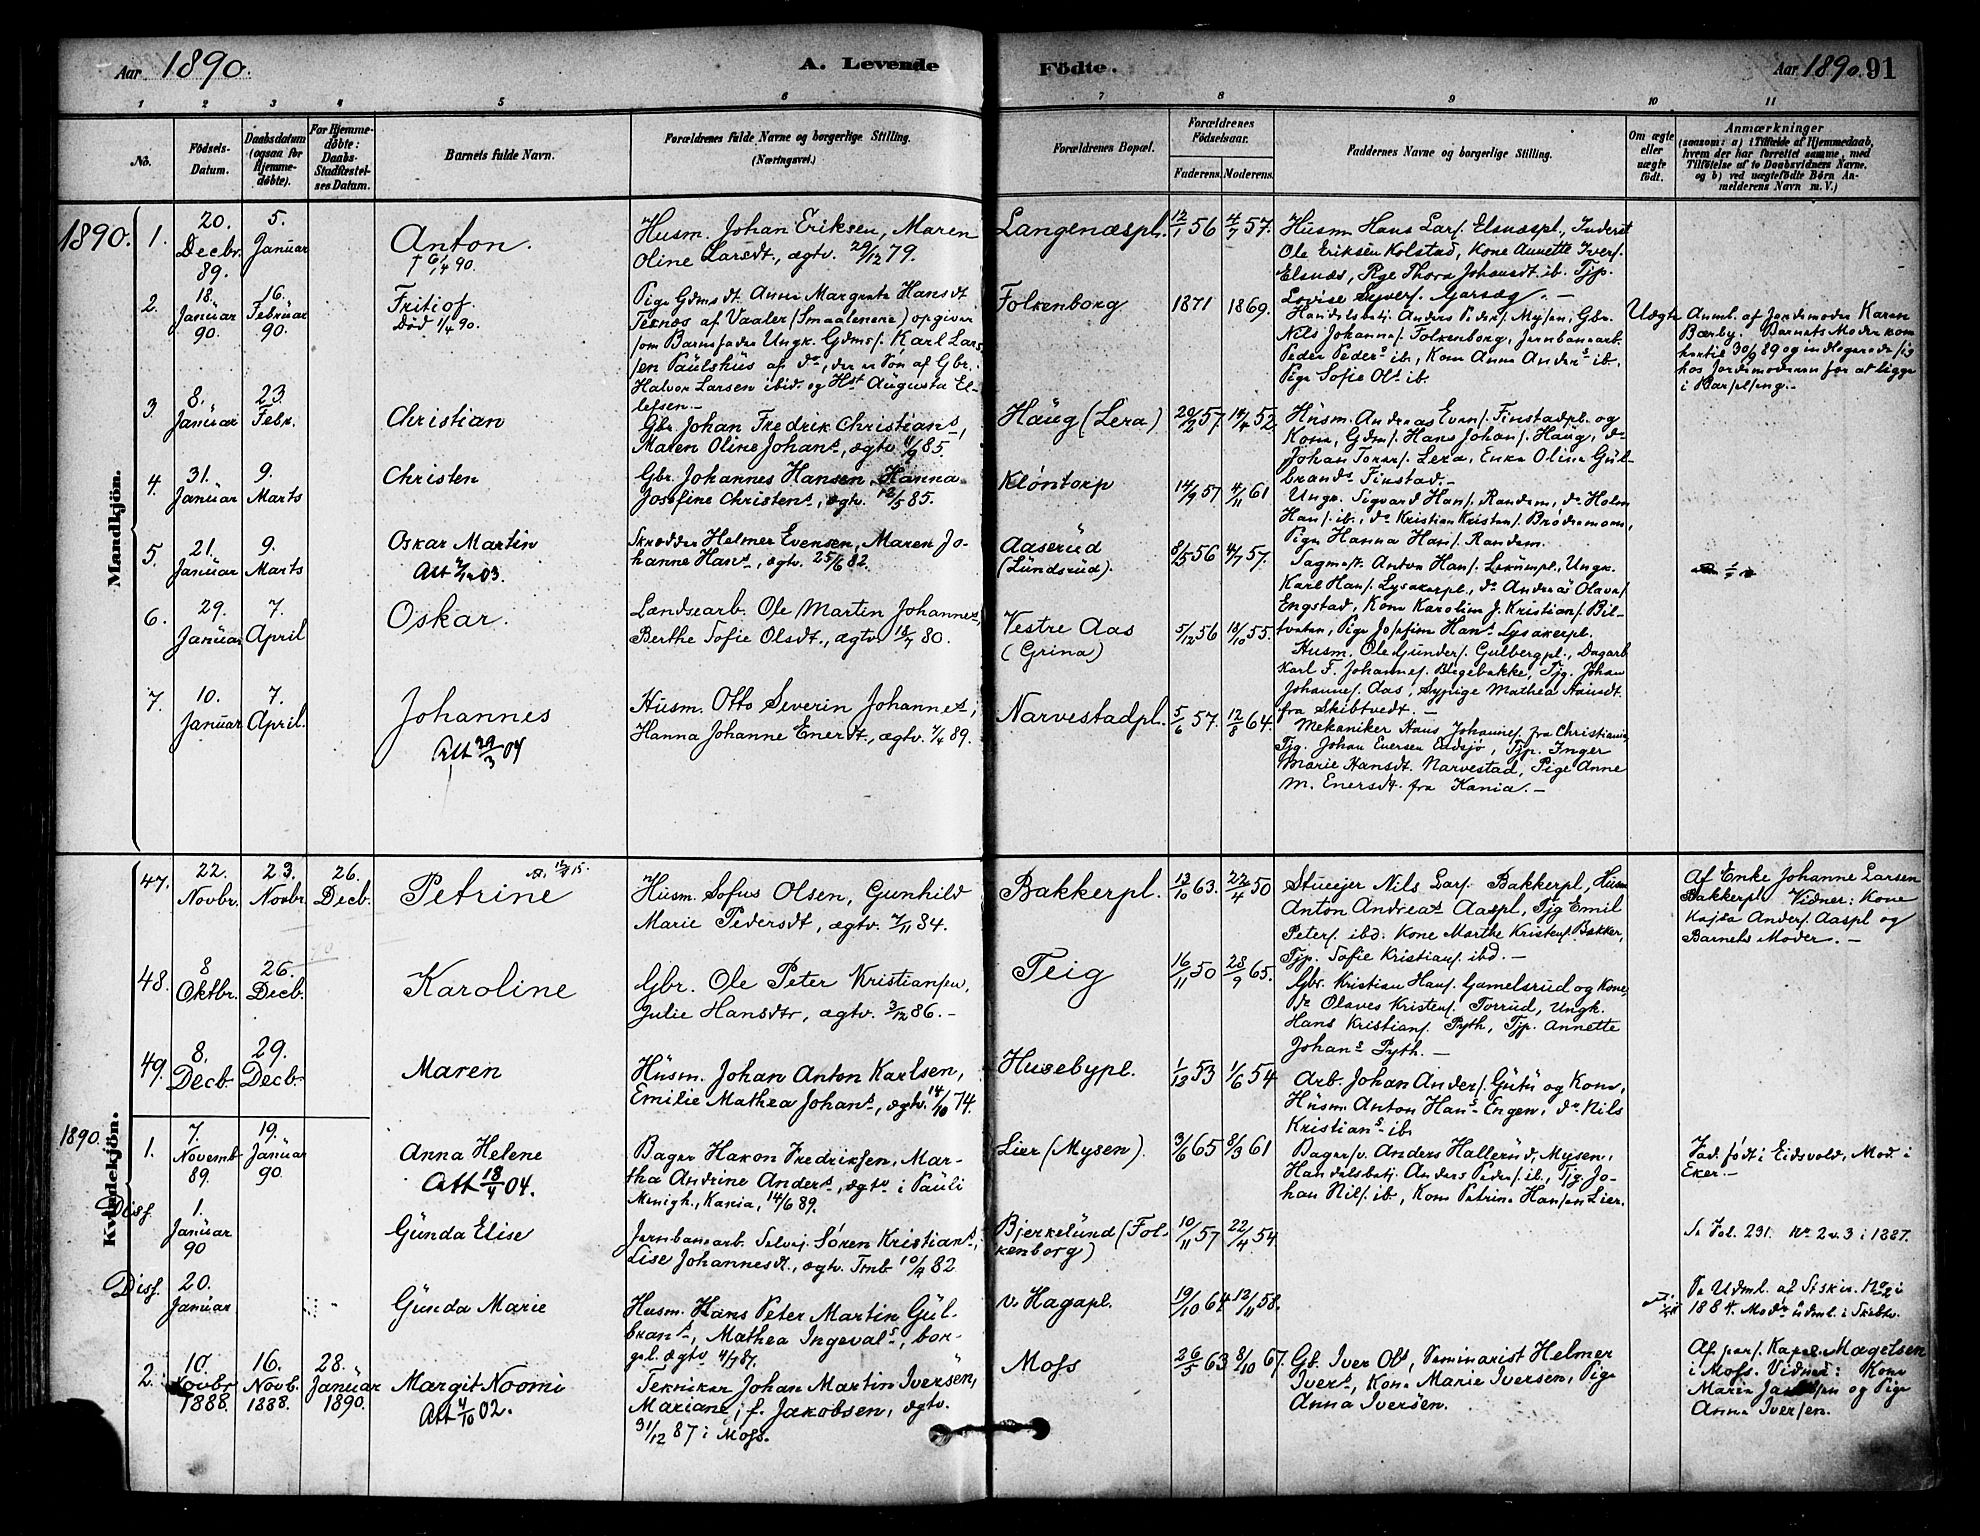 Aar 1890.
A. Levende Födte.
Aar 1890. 91
1 2 3 4 5 6 7 8 9 10 11
No.
Födsels-Datum.
Daabsdatum (ogsaa for Hjemme-döbte).
For Hjemme-döbte: Daabs-Stadfæstel-ses Datum.
Barnets fulde Navn.
Forældrenes fulde Navne og borgerlige Stilling.
(Næringsvei.)
Forældrenes Bopæl.
Forældrenes Födselsaar.
Faderens. Moderens.
Faddernes Navne og borgerlige Stilling.
Om ægte eller uægte født.
Anmærkninger
(saasom: a) i Tilfælde af Hjemmedaab,
hvem der har forrettet samme, med
Tilföielse af to Daabsvidners Navne,
og b) ved uægtefödte Börn An-
melderens Navn m. V.)
Mandkjön.
1890. 1. 20. Decbr. 89. 5. Januar
Anton.
† 6/4 90.
Husm. Johan Eriksen, Maren
Oline Larsdt., ægtv. 29/12 79.
Langenæspl. 12/1 56 4/7 57.
Husm. Hans Lars. Elsnæspl., Inderst
Ole Eriksen Kolstad, Kone Annette Ivers.
Elsnæs, Pige Thora Johansdt. ib. Tjp.
Lovise Syvers.
2. 18. Januar 90. 16. Februar 90.
Fritiof.
Död 1/4 90.
Pige Gdmsdt. Anne Margrete Hansdt
Texnæs af Vaaler (Smaalenene) opgiver
som Barnefader Ungk. Gdms. Karl Lar-
sen Paulshus af do, der er Søn af Gbr.
Halvor Larsen ibid. og Hst. Augusta El-
lefsen.–
Folkenborg 1871 1869.
Handelsbetj. Anders Peders. Mysen, Gbr.
Nils Johannes. Folkenborg, Jernbanearb.
Peder Peders ib., Kone Anne Anders ib.
Pige Sofie Ols ib.
Uægte
Anml. af Jordemoder Karen
Bærby. Barnets Moder kom
hertil 30/9 89 og indlogerede sig
hos Jordemoderen for at ligge
i Barselseng.–
3. 8. Januar 23. Febr.
Christian
Gbr. Johan Fredrik Christians,
Maren Oline Johans, ægtv. 85.
Haug (Lera) 29/2 57 14/4 52
Husm. Andreas Evens. Finstadpl. og
Kone, Gdms. Hans Johans. Haug, do
Johan Torers. Lera, Enke Oline Gul-
brands Finstad.–
4. 31. Januar 9. Marts
Christen
Gbr. Johannes Hansen, Hanna
Josefine Christens, ægtv. 12/5 85.
Kløntorp 14/9 57 4/11 61
Ungk. Sigvard Hans. Randem, do Holm
Hans. ib., do Kristian Kristens. Brødremoen,
Pige Hanna Hans. Randem.
5. 21. Januar 9. Marts
Oskar Martin
Att 03.
Skrædder Helmer Evensen, Maren Jo-
hanne Hans, ægtv. 25/6 82.
Aaserud
(Lundsrud). 8/5 56 4/7 57.
Sagmest. Anton Hans. Lekumpl., Ungk.
Karl Hans. Lysakerpl., do Andreas Olavs.
Engstad, Kone Karoline J. Kristians. Bil-
tvaten, Pige Josefine Hans Lysakerpl.
6. 29. Januar 7. April
Oskar.
Landsearb. Ole Martin Johannes,
Berthe Sofie Olsdt., ægtv. 18/7 80.
Vestre Aas
(Grina) 5/12 56 18/10 55.
Husm. Ole Gunders. Gulbergpl., Dagarb.
Karl F. Johannes. Bøgebakke, Tjg. Johan
Johannes. Aas, Sypige Mathea Hansdt.
fra Skibtvedt.–
7. 10. Januar 7. April.
Johannes
Att 29/3 04
Husm. Otto Severin Johannes,
Hanna Johanne Enersdt., ægtv. 7/4 89.
Narvestadpl. 5/6 57. 12/8 64.
Mekaniker Hans Johannes. fra Christiania
Tjg. Johan Eversen Eidsjø, Tjp. Inger
Marie Hansdt. Narvestad, Pige Anne
M. Enersdt. fra Kania.–
Kvindekjön.
47. 22. Novbr. 23. Novbr. 26. Decb.
Petrine
Husm. Sofus Olsen, Gunhild
Marie Pedersdt, ægtv. 7/11 84.
Bakkerpl. 13/10 63. 22/4 50
Stueejer Nils Lars. Bakkerpl., Husm.
Anton Andreas Aaspl., Tjg. Emil
Peters. ibd. Kone Marthe Kristens. Bakker,
Tjp. Sofie Kristians. ibd.–
Af Enke Johanne Larsen
Bakkerpl. Vidner: Kone
Kajsa Anders. Aaspl og
Barnets Moder.–
48. 8 Oktbr. 26. Decb.
Karoline
Gbr. Ole Peter Kristiansen,
Julie Hansdtr, ægtv. 3/12 86.–
Teig 16/11 50 28/9 65.
Gbr. Kristian Hans. Gamelsrud og Kone,
do Olaves Kristens. Torrud, Ungk.
Hans Kristians. Pyth, Tjp. Annette
Johans Pyth.–
49. 8. Decb. 29. Decb.
Maren
Husm. Johan Anton Karlsen,
Emilie Mathea Johans, ægtv. 14/10 74.
Husebypl. 1/12 53 1/6 54
Arb. Johan Anders. Gutu og Kone,
Husm. Anton Hans Engen, do Nils
Kristians ib.
1890. 1. 7. Novemb. 89. 19. Januar 90.
Anna Helene
Att 18/4 04.
Bager Hakon Fredriksen, Mar-
tha Andrine Anders, ægtv. i Pauli
Menigh., Kania, 14/6 89.
Lier (Mysen). 3/6 65 8/3 61
Bagersv. Anders Hallerud, Mysen,
Handelsbetj. Anders Peders. ib., Tjg. Jo-
han Nils. ib., Kone Petrine Hansen Lier.
Fad. født i Eidsvold, Mod. i
Eker.–
Diss. 1. Januar 90
Gunda Elise
Jernbanearb. Selvej. Søren Kristians,
Lise Johannesdt., ægtv. Tmb 10/4 82
Bjerkelund (Fol-
kenborg) 10/11 57 22/4 54
Se Fol. 231. No 2 & 3 i 1887.
Diss. 20. Januar
Gunda Marie
Husm. Hans Peter Martin Gul-
brans, Mathea Ingevals, bor-
gel. ægtv. 4/7 87.
v. Hagapl. 19/10 64 12/11 58.
Udml. af Stskir. No 2 i
1884. Modr udml. i Skibtv.
2. 10. Novbr 1888. 16. Novb. 1888. 28. Januar 1890.
Margit Noomi
Att 4/10 02.
Tekniker Johan Martin Iversen,
Mariane, f. Jakobsen, ægtv.
31/12 87 i Moss.
Moss 26/5 63 8/10 67.
Gb. Iver Ols, Seminarist Helmer
Ivers, Kone Marie Iversen, Pige
Anna Iversen.
Af pers. Kapel. Magelsen
i Moss. Vidner: Kone
Maren og Pige
Anna Iversen.